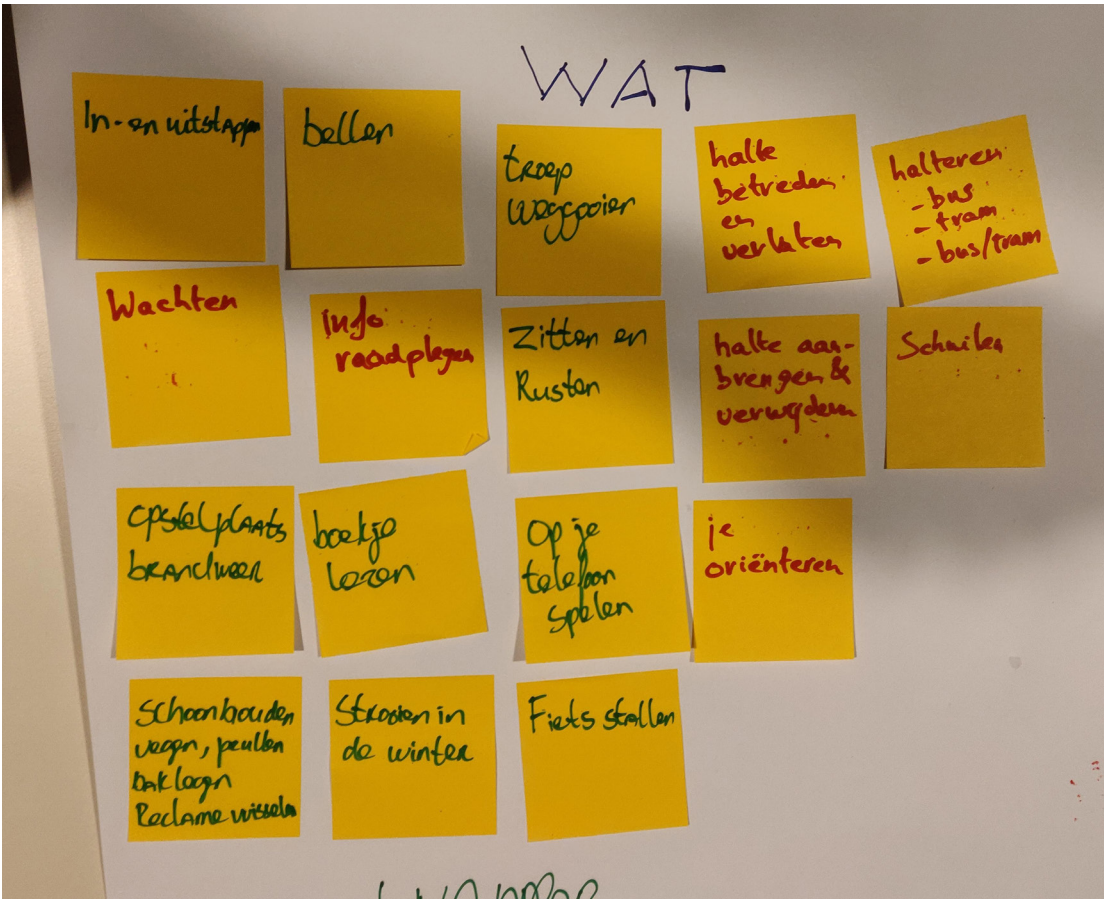 WAT
In- en uitstappen
bellen
troep
weggooien
halte
betreden
en
verlaten
halteren
- bus
- tram
- bus/tram
Wachten
info
raadplegen
Zitten en
Rusten
halte aan-
brengen &
verwijderen
Schuilen
opstelplaats
brandweer
boekje
lezen
Op je
telefoon
spelen
je
oriënteren
Schoonhouden
vegen, peuken
bak legen
Reclame wisselen
Strooien in
de winter
Fiets stallen